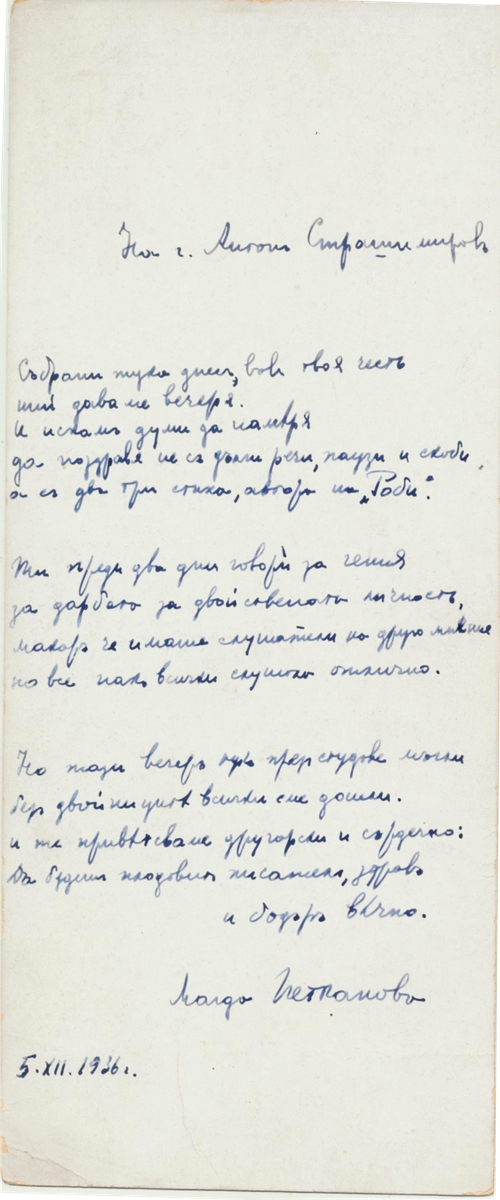 На г. Антонъ Страшимировъ
Събрани тука днесъ, въ твоя честь
ний даваме вечеря.
И искамъ думи да намѣря
да поздравя не съ дълги речи, паузи и скоби,
а съ два три стиха, автора на „Роби“.
Ти преди два дни говори за гения
за дарбата за двойствената личность,
макаръ че имаше слушатели на друго мнѣние
но все пакъ всички слушаха отлично.
Но тази вечеръ презъ студове мъгли
безъ двойници всички сме дошли.
и те привѣтсваме другарски и сърдечно:
Да бѫдешъ плодовитъ писатель, здравъ
и бодъръ вѣчно.
Магда Петканова
5.XII.1936 г.